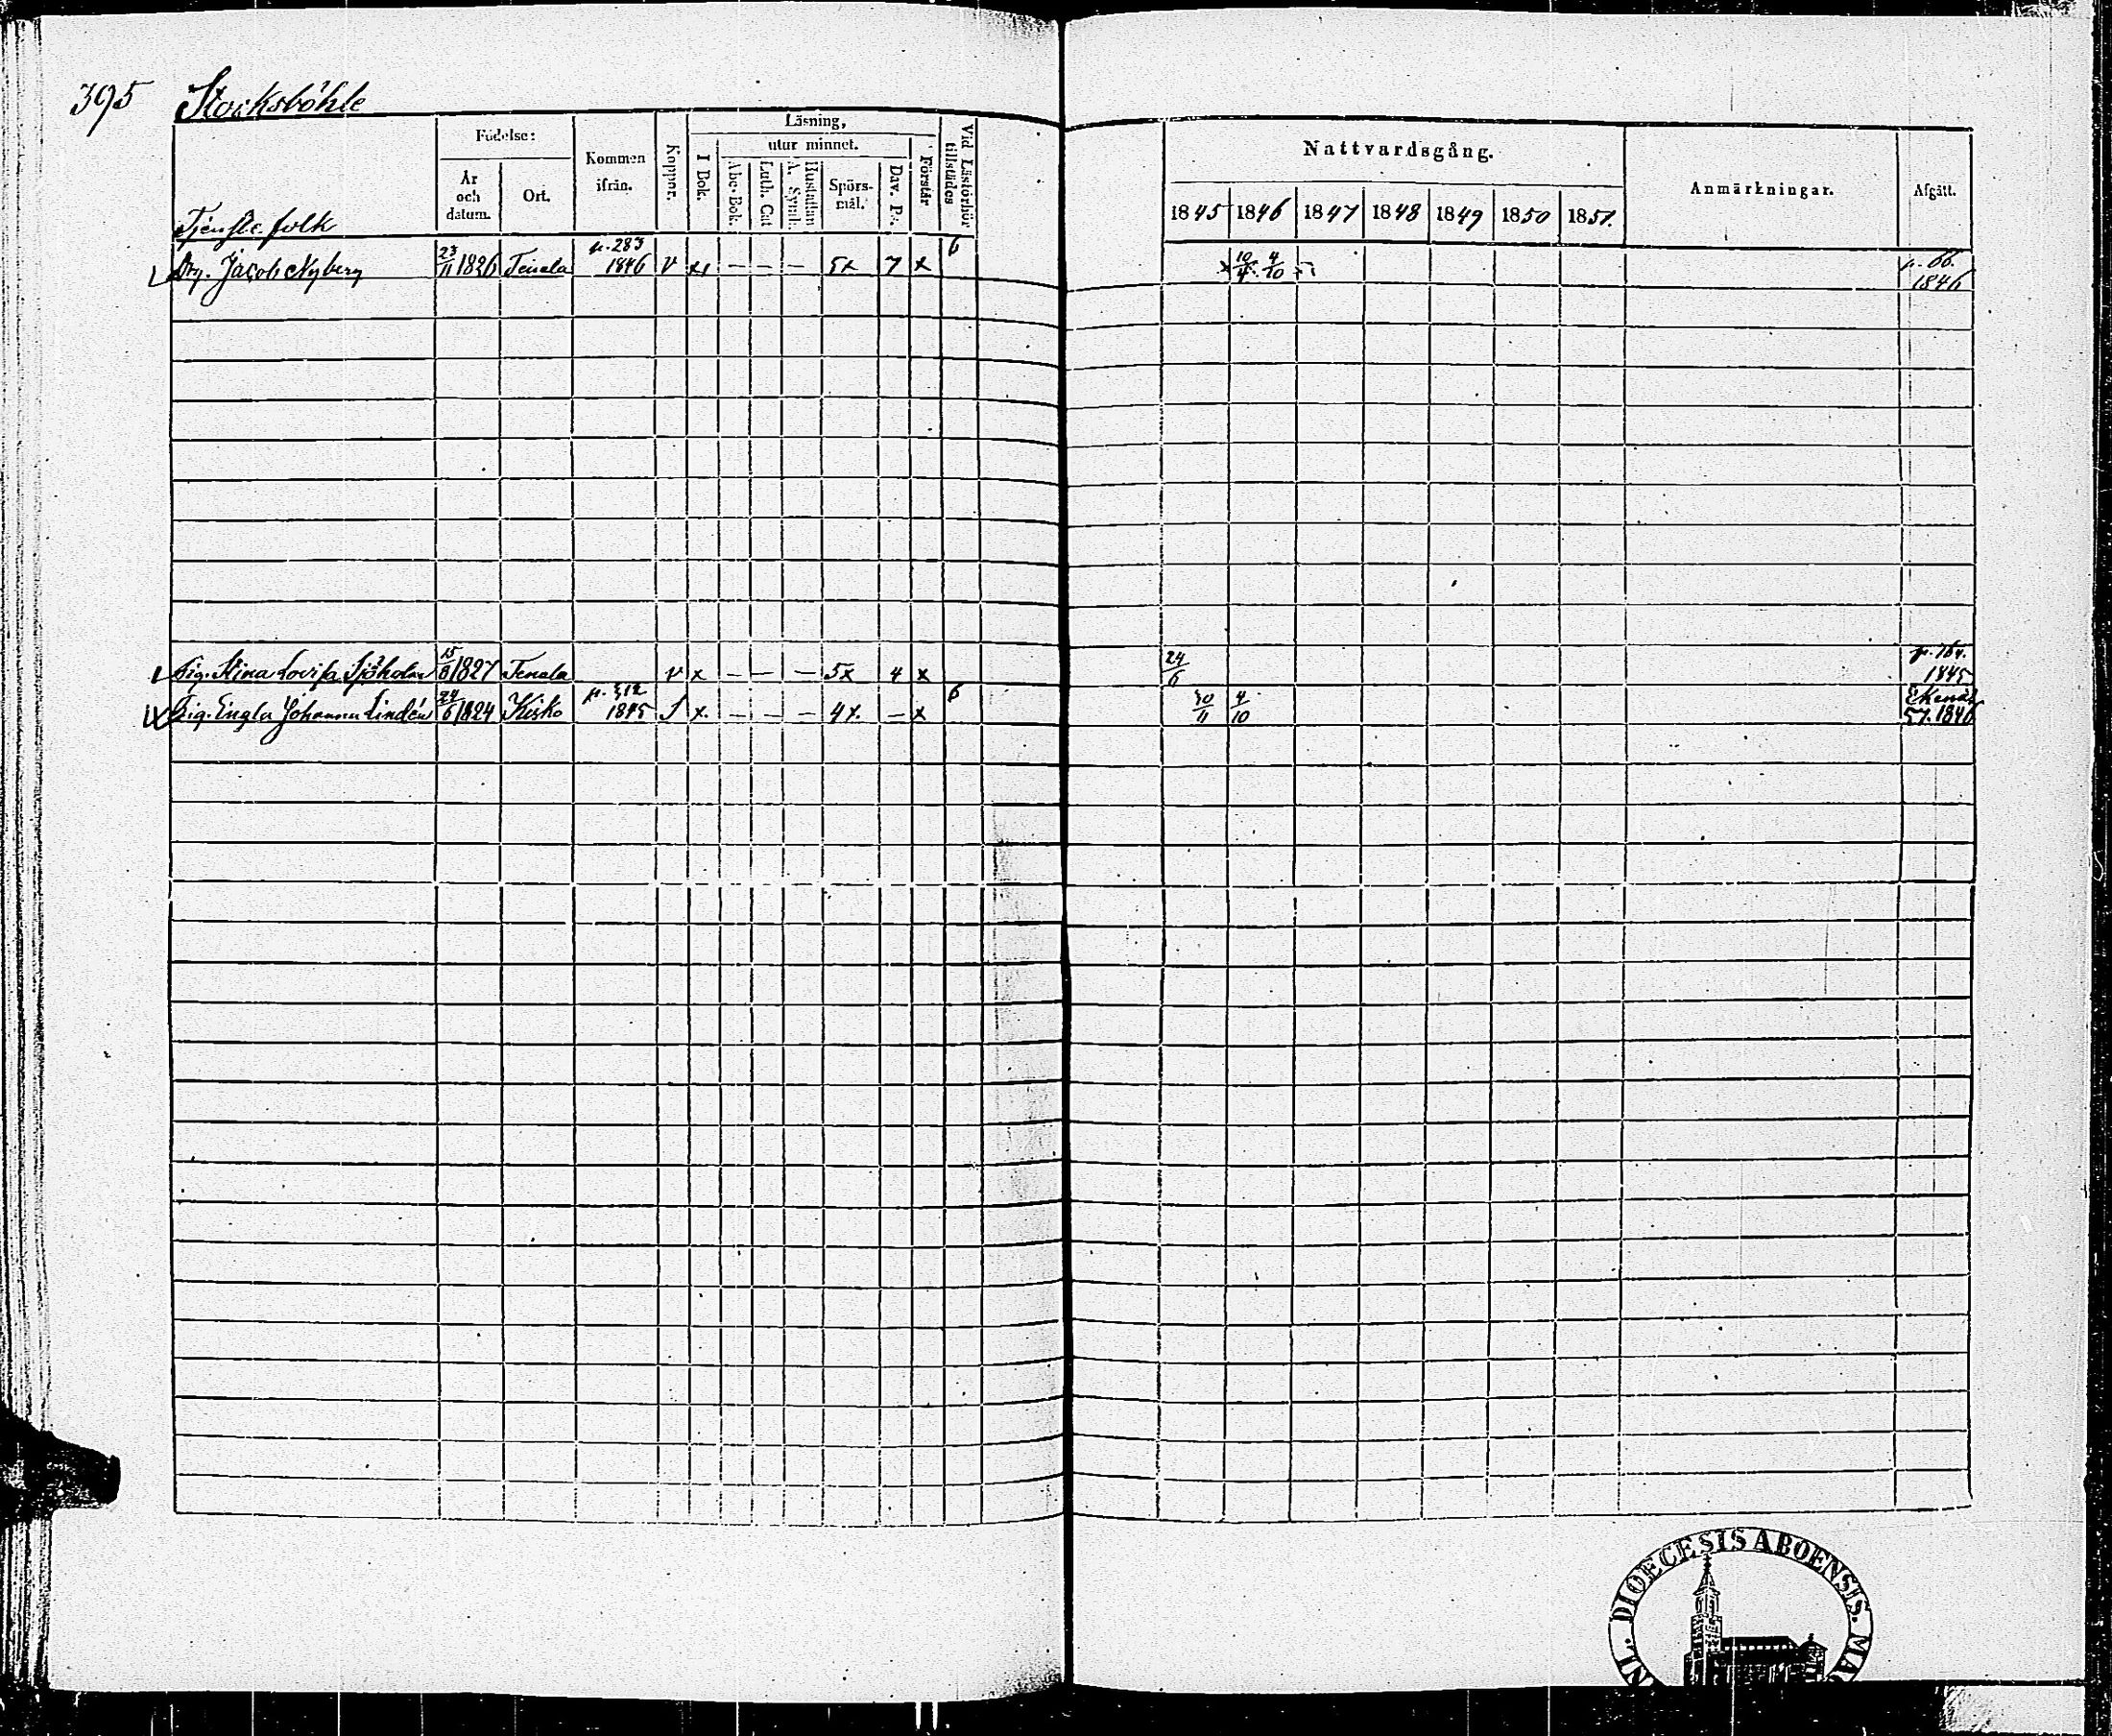 395 Stocksböhle
Födelse: Kommen ifrån. Koppor. Läsning, Vid Läsförhör tillstädes
År och datum. Ort. I Bok. utur minnet. Förstår
Abc-Bok. Luth. Cat. Hustaflan A. Symb. Spörs-mål. Dav. Ps.
Nattvardsgång. Anmärkningar. Afgått.
1845 1846 1847 1848 1849 1850 1851.
Tjenste folk
Drg. Jacob Nyberg 23/11 1826 Tenala p. 283 1846 v x — — — 5x 7 x 6 x 10/4. 4/10 p. 66. 1846
Pig. Stina Lovisa Sjöholm 15/8 1827 Tenala v x — — — 5x 4 x 24/6 1845
Pig. Engla Johanna Lindén 24/6 1824 Kisko p. 312 1845 x. — — — 4x. — x 6 30/11 4/10 Ekenäs 57. 1846
DIOECESIS ABOENSIS.